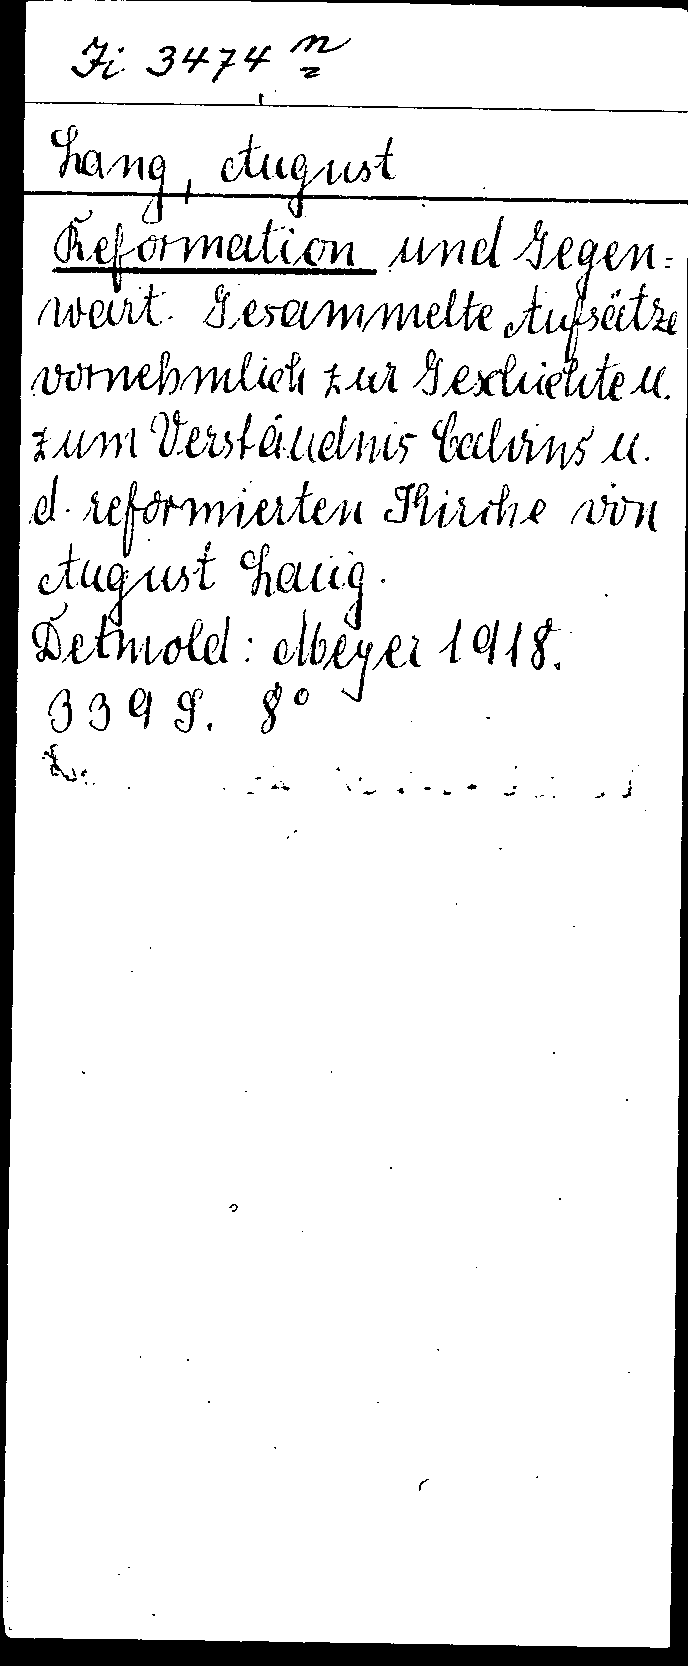 Ji 3474 n
Lang, August
Reformation und Gegen=
wart. Gesammelte Aufsätze
vornehmlich zur Geschichte u.
zum Verständnis Calvins u.
d. reformierten Kirche von
August Lang.
Detmold: Meyer 1918.
339 S. 8°